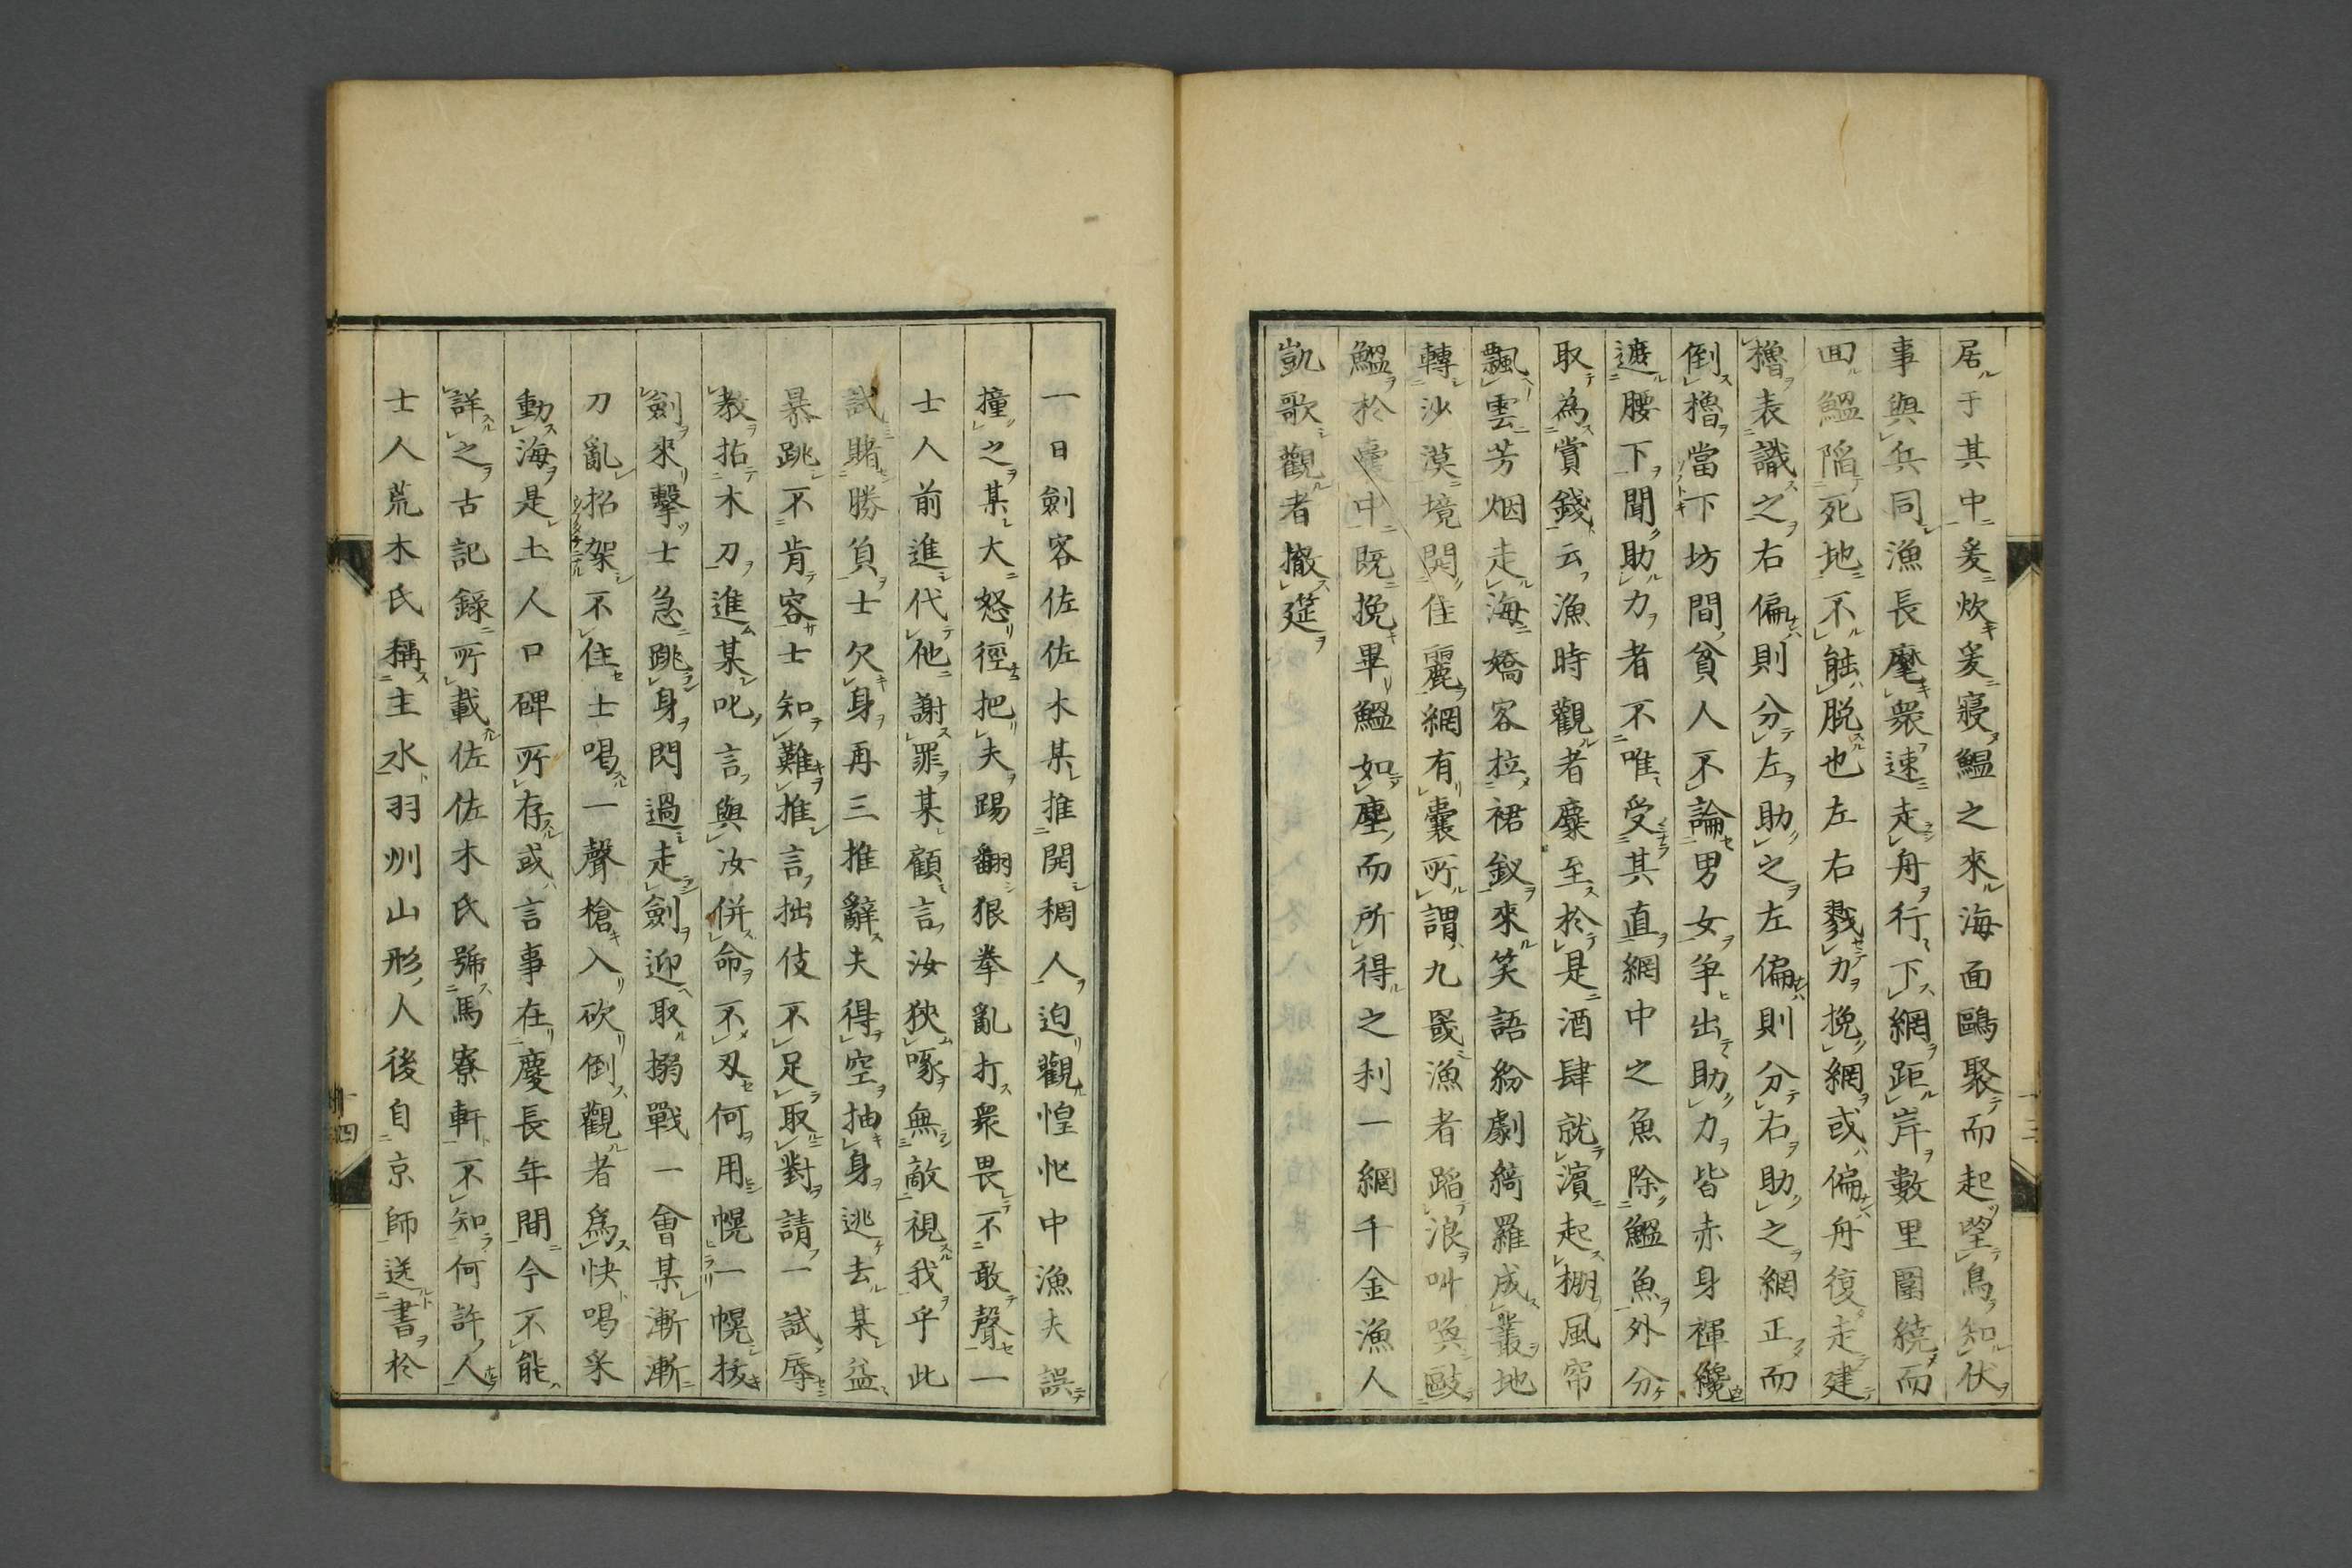 居于其中爰炊爰寢鰮之來海面鷗聚而起望鳥知伏
事與兵同漁長麾衆速走舟行下網距岸數里圍繞而
回鰮陷死地不能脱也左右戮力挽網或偏舟復走建
櫓表識之右偏則分左助之左偏則分右助之網正而
倒櫓當下坊間貧人不論男女争出助力皆赤身褌纔
遮腰下聞助力者不唯受其直網中之魚除鰮魚外分
取為賞錢云漁時觀者麇至於是酒肆就濱起棚風帘
飄雲芳烟走海嬌客拉裙釵來笑語紛劇綺羅成叢地
轉沙漠境開佳麗網有囊所謂九罭漁者蹈浪叫喚敺
鰮於囊中既挽畢鰮如塵而所得之利一網千金漁人
凱歌觀者撤筵
一日劍客佐佐木某推開稠人迫觀惶忙中漁夫誤
撞之某大怒徑把夫踢翻狠拳亂打衆畏不敢聲一
士人前進代他謝罪某顧言汝狹啄無敵視我乎此
試賭勝負士欠身再三推辭夫得空抽身逃去某益
暴跳不肯容士知難推言拙伎不足取對請一試辱
教拓木刀進某叱言與汝併命不刃何用幌一幌拔
劍來擊士急跳身閃過走劍迎取搦戰一會某漸漸
刀亂招架不住士喝一聲槍入砍倒觀者為快喝采
動海是土人口碑所存或言事在慶長年間今不能
詳之古記錄所載佐佐木氏號馬寮軒不知何許人
士人荒木氏稱主水羽州山形人後自京師送書於